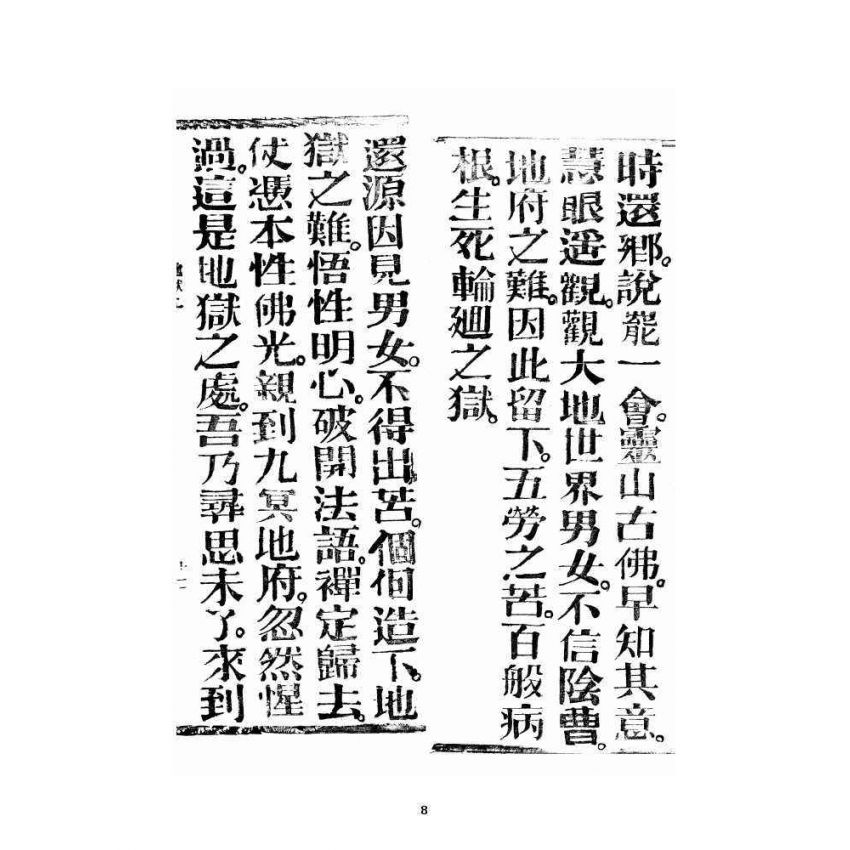 時還鄉。說罷一會。靈山古佛。早知其意。
慧眼遥觀。觀大地世界男女。不信陰曹。
地府之難。因此留下。五勞之苦。百般病
根。生死輪廻之獄。
還源因見男女。不得出苦。個個造下。地
獄之難。悟性明心。破開法語。禪定歸去。
仗憑本性佛光。親到九冥地府。忽然惺
過。這是地獄之處。吾乃尋思未了。來到
8